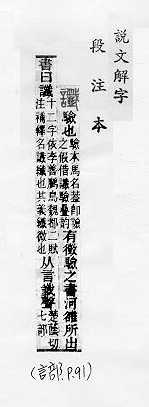 說文解字
段注本
讖 驗也驗本馬名蓋卽譣之假借讖驗曡韵有徵驗之書河雒所出
書曰讖十二字依李善鵩鳥魏都二賦注補釋名讖纖也其義纖微也从言韱聲楚蔭切七部
(言部.P.91)